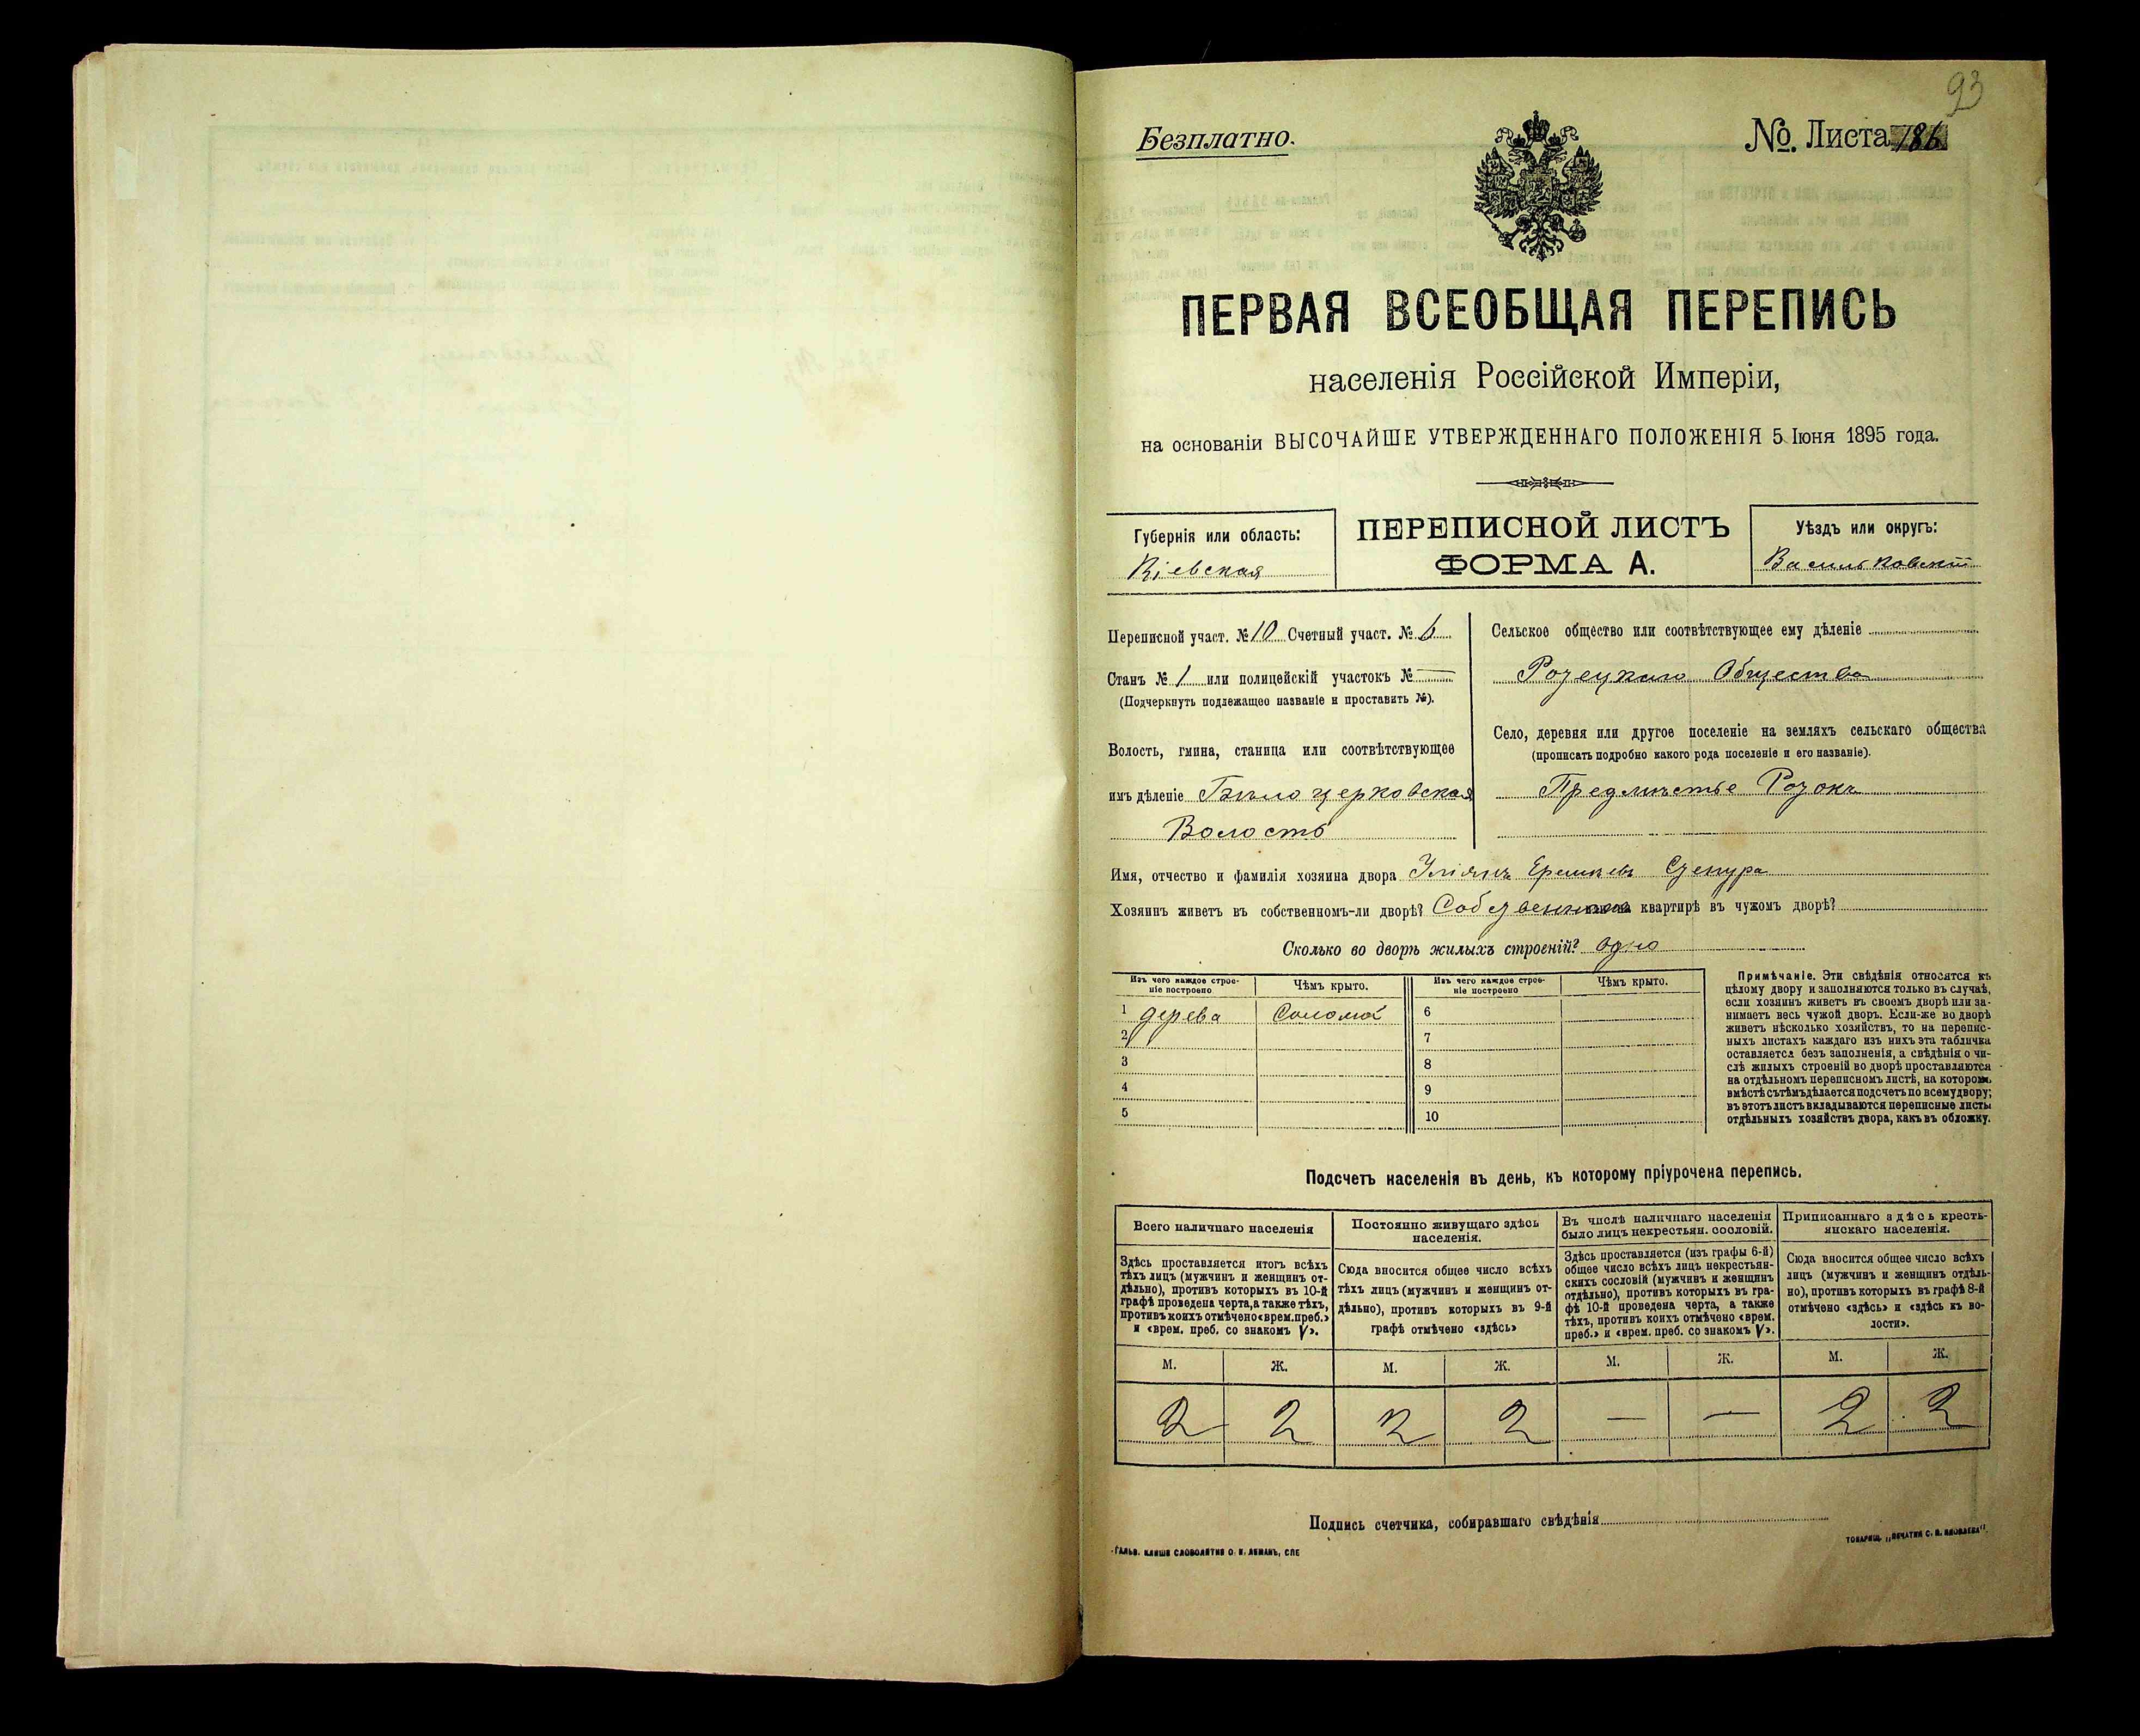 93
Безплатно.
№. Листа 186
ПЕРВАЯ ВСЕОБЩАЯ ПЕРЕПИСЬ
населенія Россійской Имперіи,
на основаніи ВЫСОЧАЙШЕ УТВЕРЖДЕННАГО ПОЛОЖЕНІЯ 5 Іюня 1895 года.
Губернія или область:
Кіевская
ПЕРЕПИСНОЙ ЛИСТЪ
ФОРМА А.
Уѣздъ или округъ:
Васильковскій
Переписной участ. № 10 Счетный участ. № 6
Станъ № 1 или полицейскій участокъ № —
(Подчеркнуть подлежащее названіе и проставить №).
Волость, гмина, станица или соотвѣтствующее
имъ дѣленіе Бѣлоцерковская
Волость
Сельское общество или соотвѣтствующее ему дѣленіе
Общества
Село, деревня или другое поселеніе на земляхъ сельскаго общества
(прописать подробно какого рода поселеніе и его названіе).
Предмѣстье
Имя, отчество и фамилія хозяина двора
Хозяинъ живетъ въ собственномъ-ли дворѣ? квартирѣ въ чужомъ дворѣ?
Сколько во дворѣ жилыхъ строеній? одно
Изъ чего каждое строе-
ніе построено
Чѣмъ крыто.
Изъ чего каждое строе-
ніе построено
Чѣмъ крыто.
1 дерева Солома 6
2 7
3 8
4 9
5 10
Примѣчаніе. Эти свѣдѣнія относятся къ
цѣлому двору и заполняются только въ случаѣ,
если хозяинъ живетъ въ своемъ дворѣ или за-
нимаетъ весь чужой дворъ. Если-же во дворѣ
живетъ нѣсколько хозяйствъ, то на перепис-
ныхъ листахъ каждаго изъ нихъ эта табличка
оставляется безъ заполненія, а свѣдѣнія о чи-
слѣ жилыхъ строеній во дворѣ проставляются
на отдѣльномъ переписномъ листѣ, на которомъ
вмѣстѣ съ тѣмъ дѣлается подсчетъ по всему двору;
въ этотъ листъ вкладываются переписные листы
отдѣльныхъ хозяйствъ двора, какъ въ обложку.
Подсчетъ населенія въ день, къ которому пріурочена перепись.
Всего наличнаго населенія
Здѣсь проставляется итогъ всѣхъ
тѣхъ лицъ (мужчинъ и женщинъ от-
дѣльно), противъ которыхъ въ 10-й
графѣ проведена черта, а также тѣхъ,
противъ коихъ отмѣчено «врем. преб.»
и «врем. преб. со знакомъ V».
Постоянно живущаго здѣсь
населенія.
Сюда вносится общее число всѣхъ
тѣхъ лицъ (мужчинъ и женщинъ от-
дѣльно), противъ которыхъ въ 9-й
графѣ отмѣчено «здѣсь»
Въ числѣ наличнаго населенія
было лицъ некрестьян. сословій.
Здѣсь проставляется (изъ графы 6-й)
общее число всѣхъ лицъ некрестьян-
скихъ сословій (мужчинъ и женщинъ
отдѣльно), противъ которыхъ въ гра-
фѣ 10-й проведена черта, а также
тѣхъ, противъ коихъ отмѣчено «врем.
преб.» и «врем. преб. со знакомъ V».
Приписаннаго здѣсь кресть-
янскаго населенія.
Сюда вносится общее число всѣхъ
лицъ (мужчинъ и женщинъ отдѣль-
но), противъ которыхъ въ графѣ 8-й
отмѣчено «здѣсь» и «здѣсь къ во-
лости».
М. Ж. М. Ж. М. Ж. М. Ж.
2 2 2 2 — — 2 2
Подпись счетчика, собиравшаго свѣдѣнія
ГАЛЬВ. КЛИШЕ СЛОВОЛИТНИ О. И. ЛЕМАНЪ, СПБ
ТОВАРИЩ. „ПЕЧАТНЯ С. П. ЯКОВЛЕВА“.